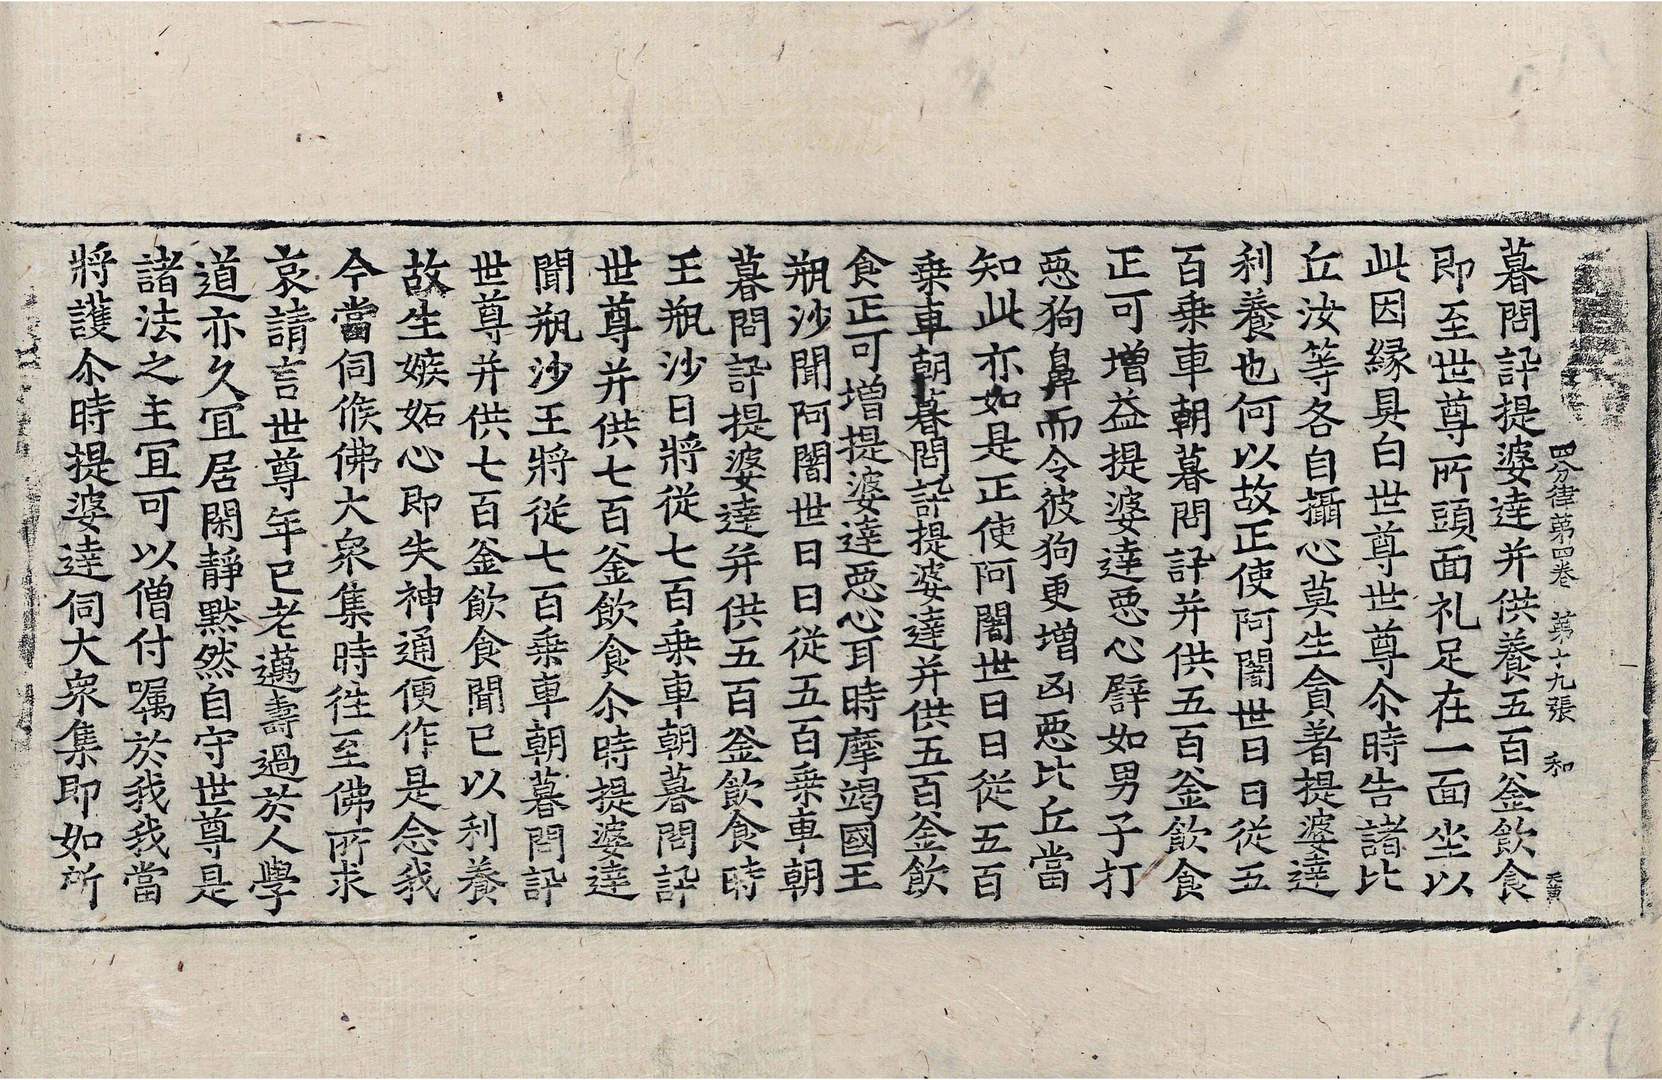 四分律第四卷 第十九張 和
天黄
暮問訊提婆達并供養五百釜飲食
即至世尊所頭面礼足在一面坐以
此因縁具白世尊世尊尒時告諸比
丘汝等各自攝心莫生貪著提婆達
利養也何以故正使阿闍世日日從五
百乗車朝暮問訊并供五百釜飲食
正可增益提婆達惡心譬如男子打
惡狗鼻而令彼狗更增凶惡比丘當
知此亦如是正使阿闍世日日從五百
乗車朝暮問訊提婆達并供五百釜飲
食正可增提婆達惡心耳時摩竭國王
瓶沙聞阿闍世日日從五百乗車朝
暮問訊提婆達并供五百釜飲食時
王瓶沙日將從七百乗車朝暮問訊
世尊并供七百釜飲食尒時提婆達
聞瓶沙王將從七百乗車朝暮問訊
世尊并供七百釜飲食聞已以利養
故生嫉妬心即失神通便作是念我
今當伺候佛大衆集時徃至佛所求
哀請言世尊年已老邁壽過於人學
道亦久冝居閑靜默然自守世尊是
諸法之主冝可以僧付囑於我我當
將護尒時提婆達伺大衆集即如所